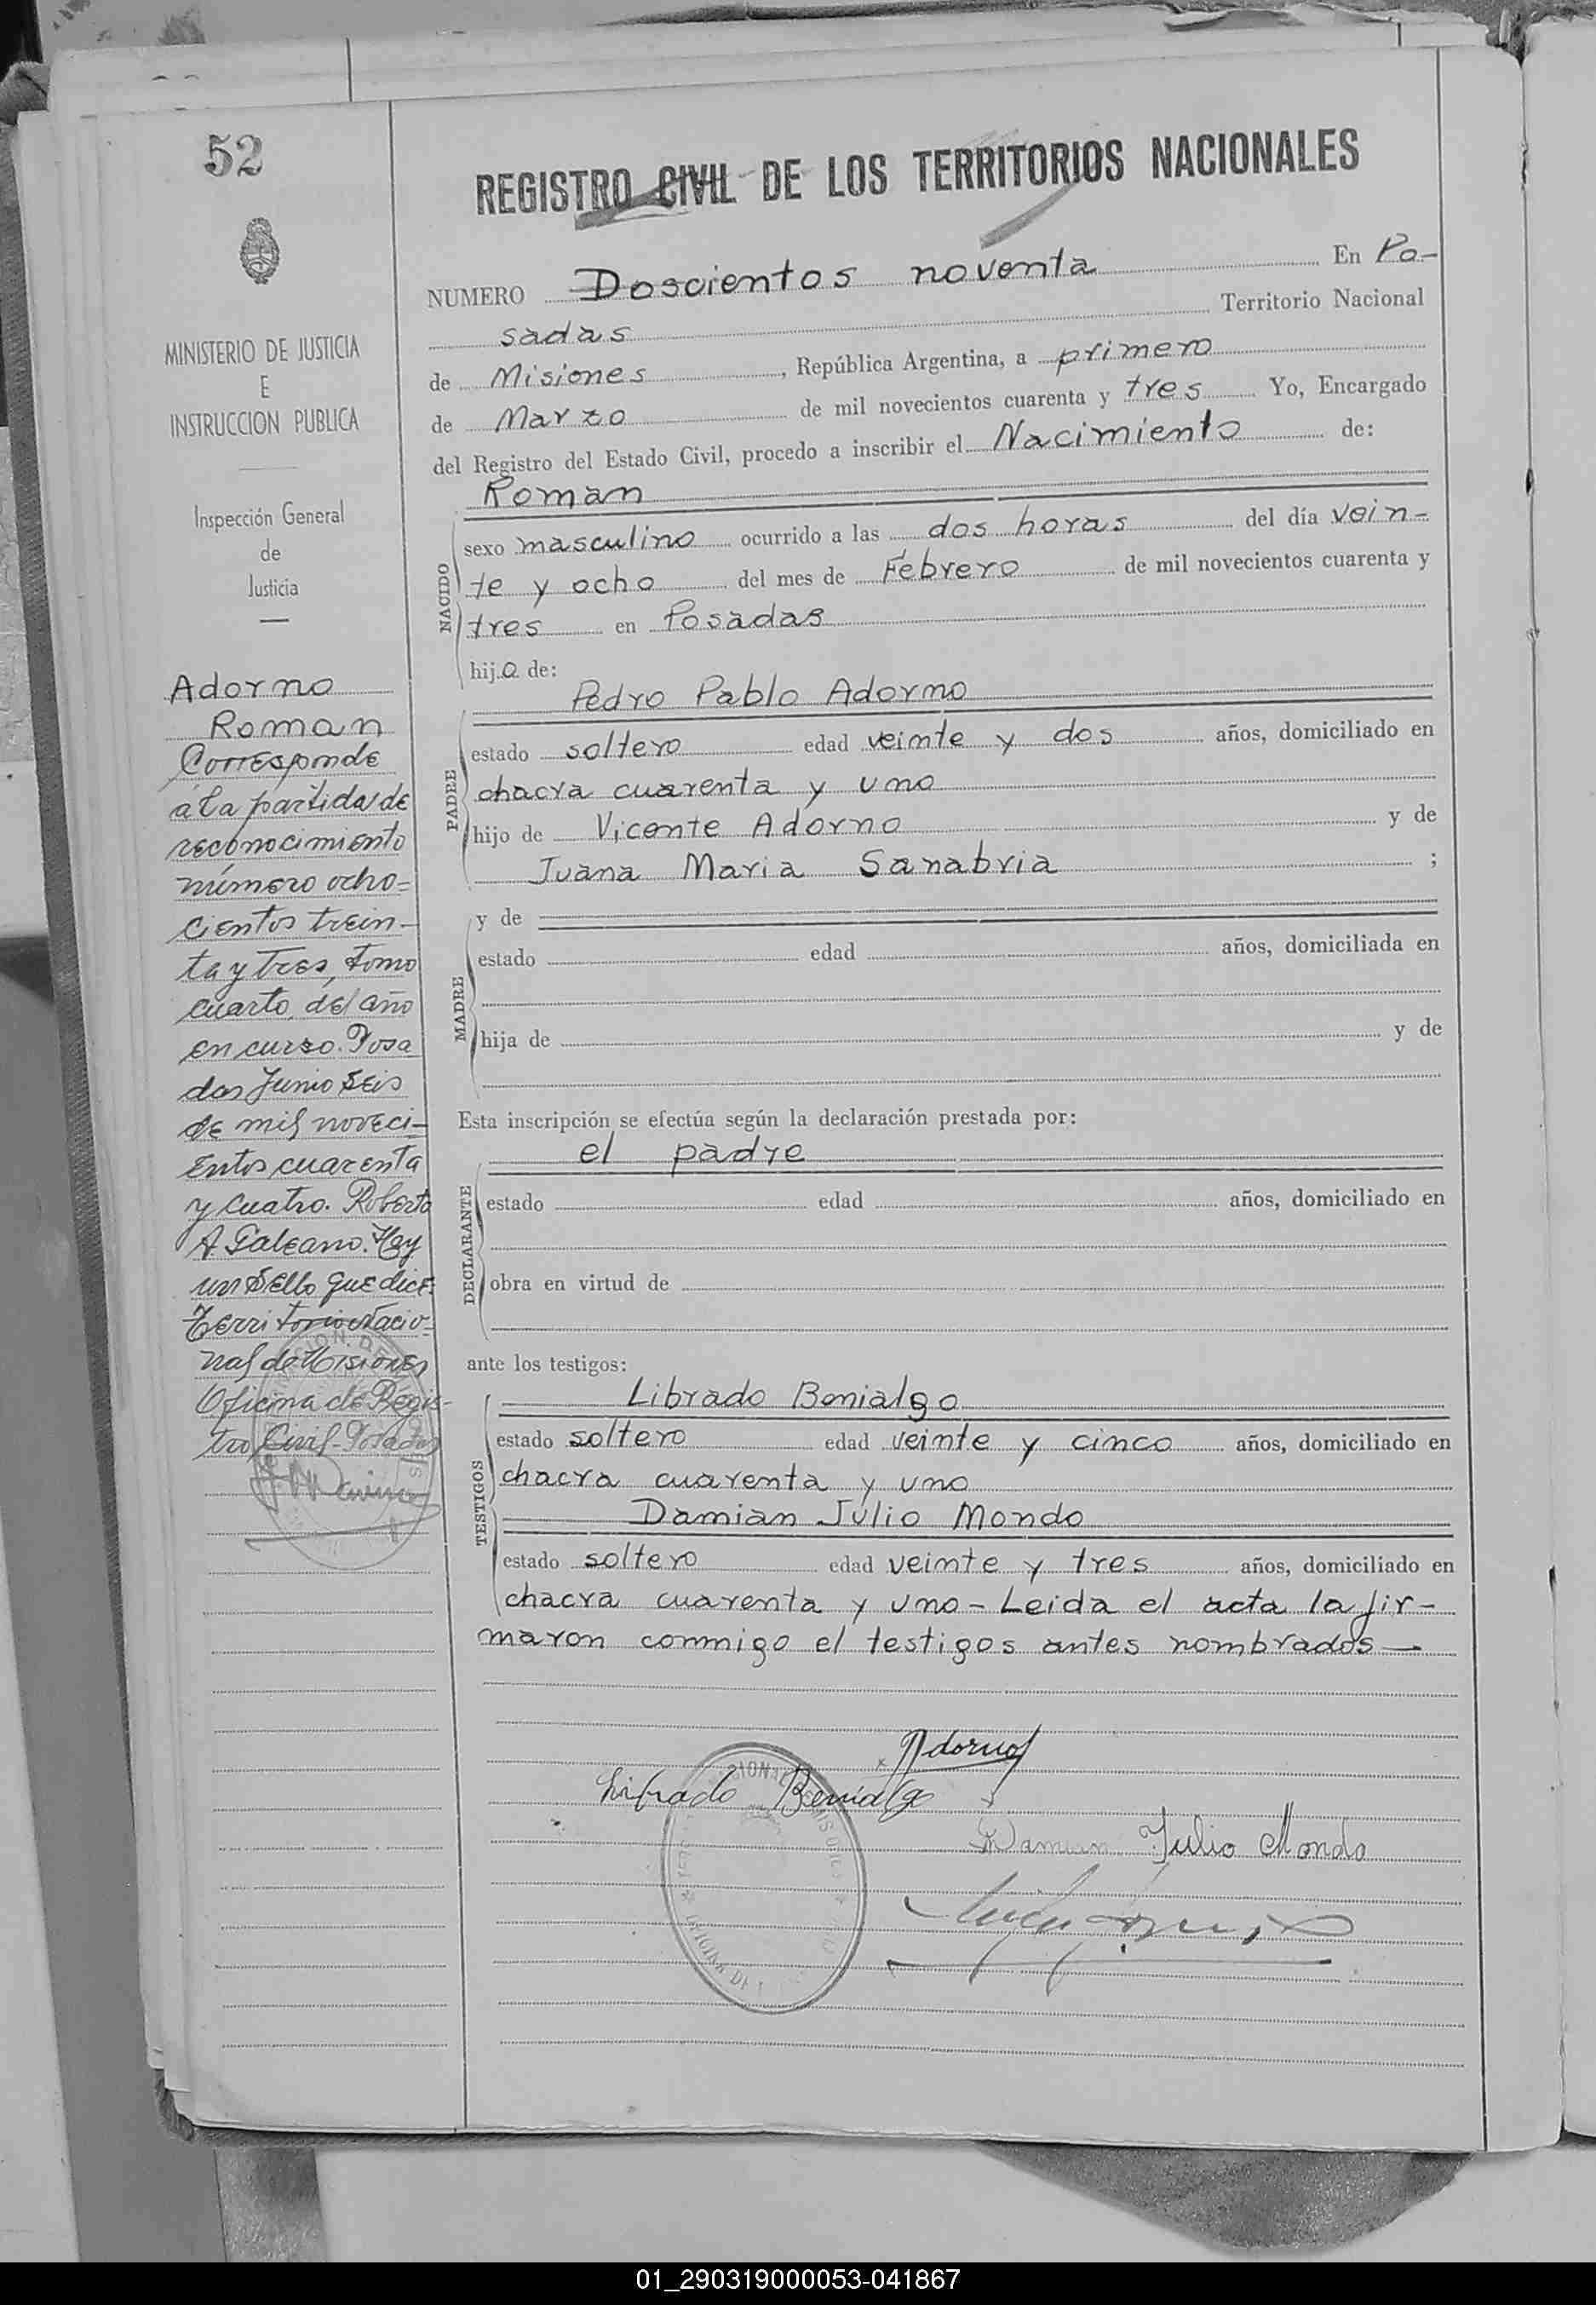 52
MINISTERIO DE JUSTICIA
E
INSTRUCCION PUBLICA
Inspección General
de
Justicia
Adorno
Roman
Corresponde
a la partida de
reconocimiento
número ocho=
cientos trein-
ta y tres, tomo
cuarto, del año
en curso. Posa
das Junio seis
de mil noveci-
entos cuarenta
y cuatro. Roberto
A. Galeano. Hay
un sello que dice:
Territorio Nacio-
nal de Misiones
Oficina de Regis-
tro Civil-Posadas
REGISTRO CIVIL DE LOS TERRITORIOS NACIONALES
NUMERO Doscientos noventa En Po-
sadas Territorio Nacional
de Misiones, República Argentina, a primero
de Marzo de mil novecientos cuarenta y tres Yo, Encargado
del Registro del Estado Civil, procedo a inscribir el Nacimiento de:
Roman
NACIDO
sexo masculino ocurrido a las dos horas del día vein-
te y ocho del mes de Febrero de mil novecientos cuarenta y
tres en Posadas
hijo de:
Pedro Pablo Adorno
PADRE
estado soltero edad veinte y dos años, domiciliado en
chacra cuarenta y uno
hijo de Vicente Adorno y de
Juana Maria Sanabria ;
MADRE
y de
estado edad años, domiciliada en
hija de y de
Esta inscripción se efectúa según la declaración prestada por:
el padre
DECLARANTE
estado edad años, domiciliado en
obra en virtud de
ante los testigos:
TESTIGOS
Librado Benialgo
estado soltero edad veinte y cinco años, domiciliado en
chacra cuarenta y uno
Damian Julio Mondo
estado soltero edad veinte y tres años, domiciliado en
chacra cuarenta y uno-Leida el acta la fir-
maron conmigo el testigos antes nombrados—
Adorno
Librado Benialgo
Damian Julio Mondo
01_290319000053-041867